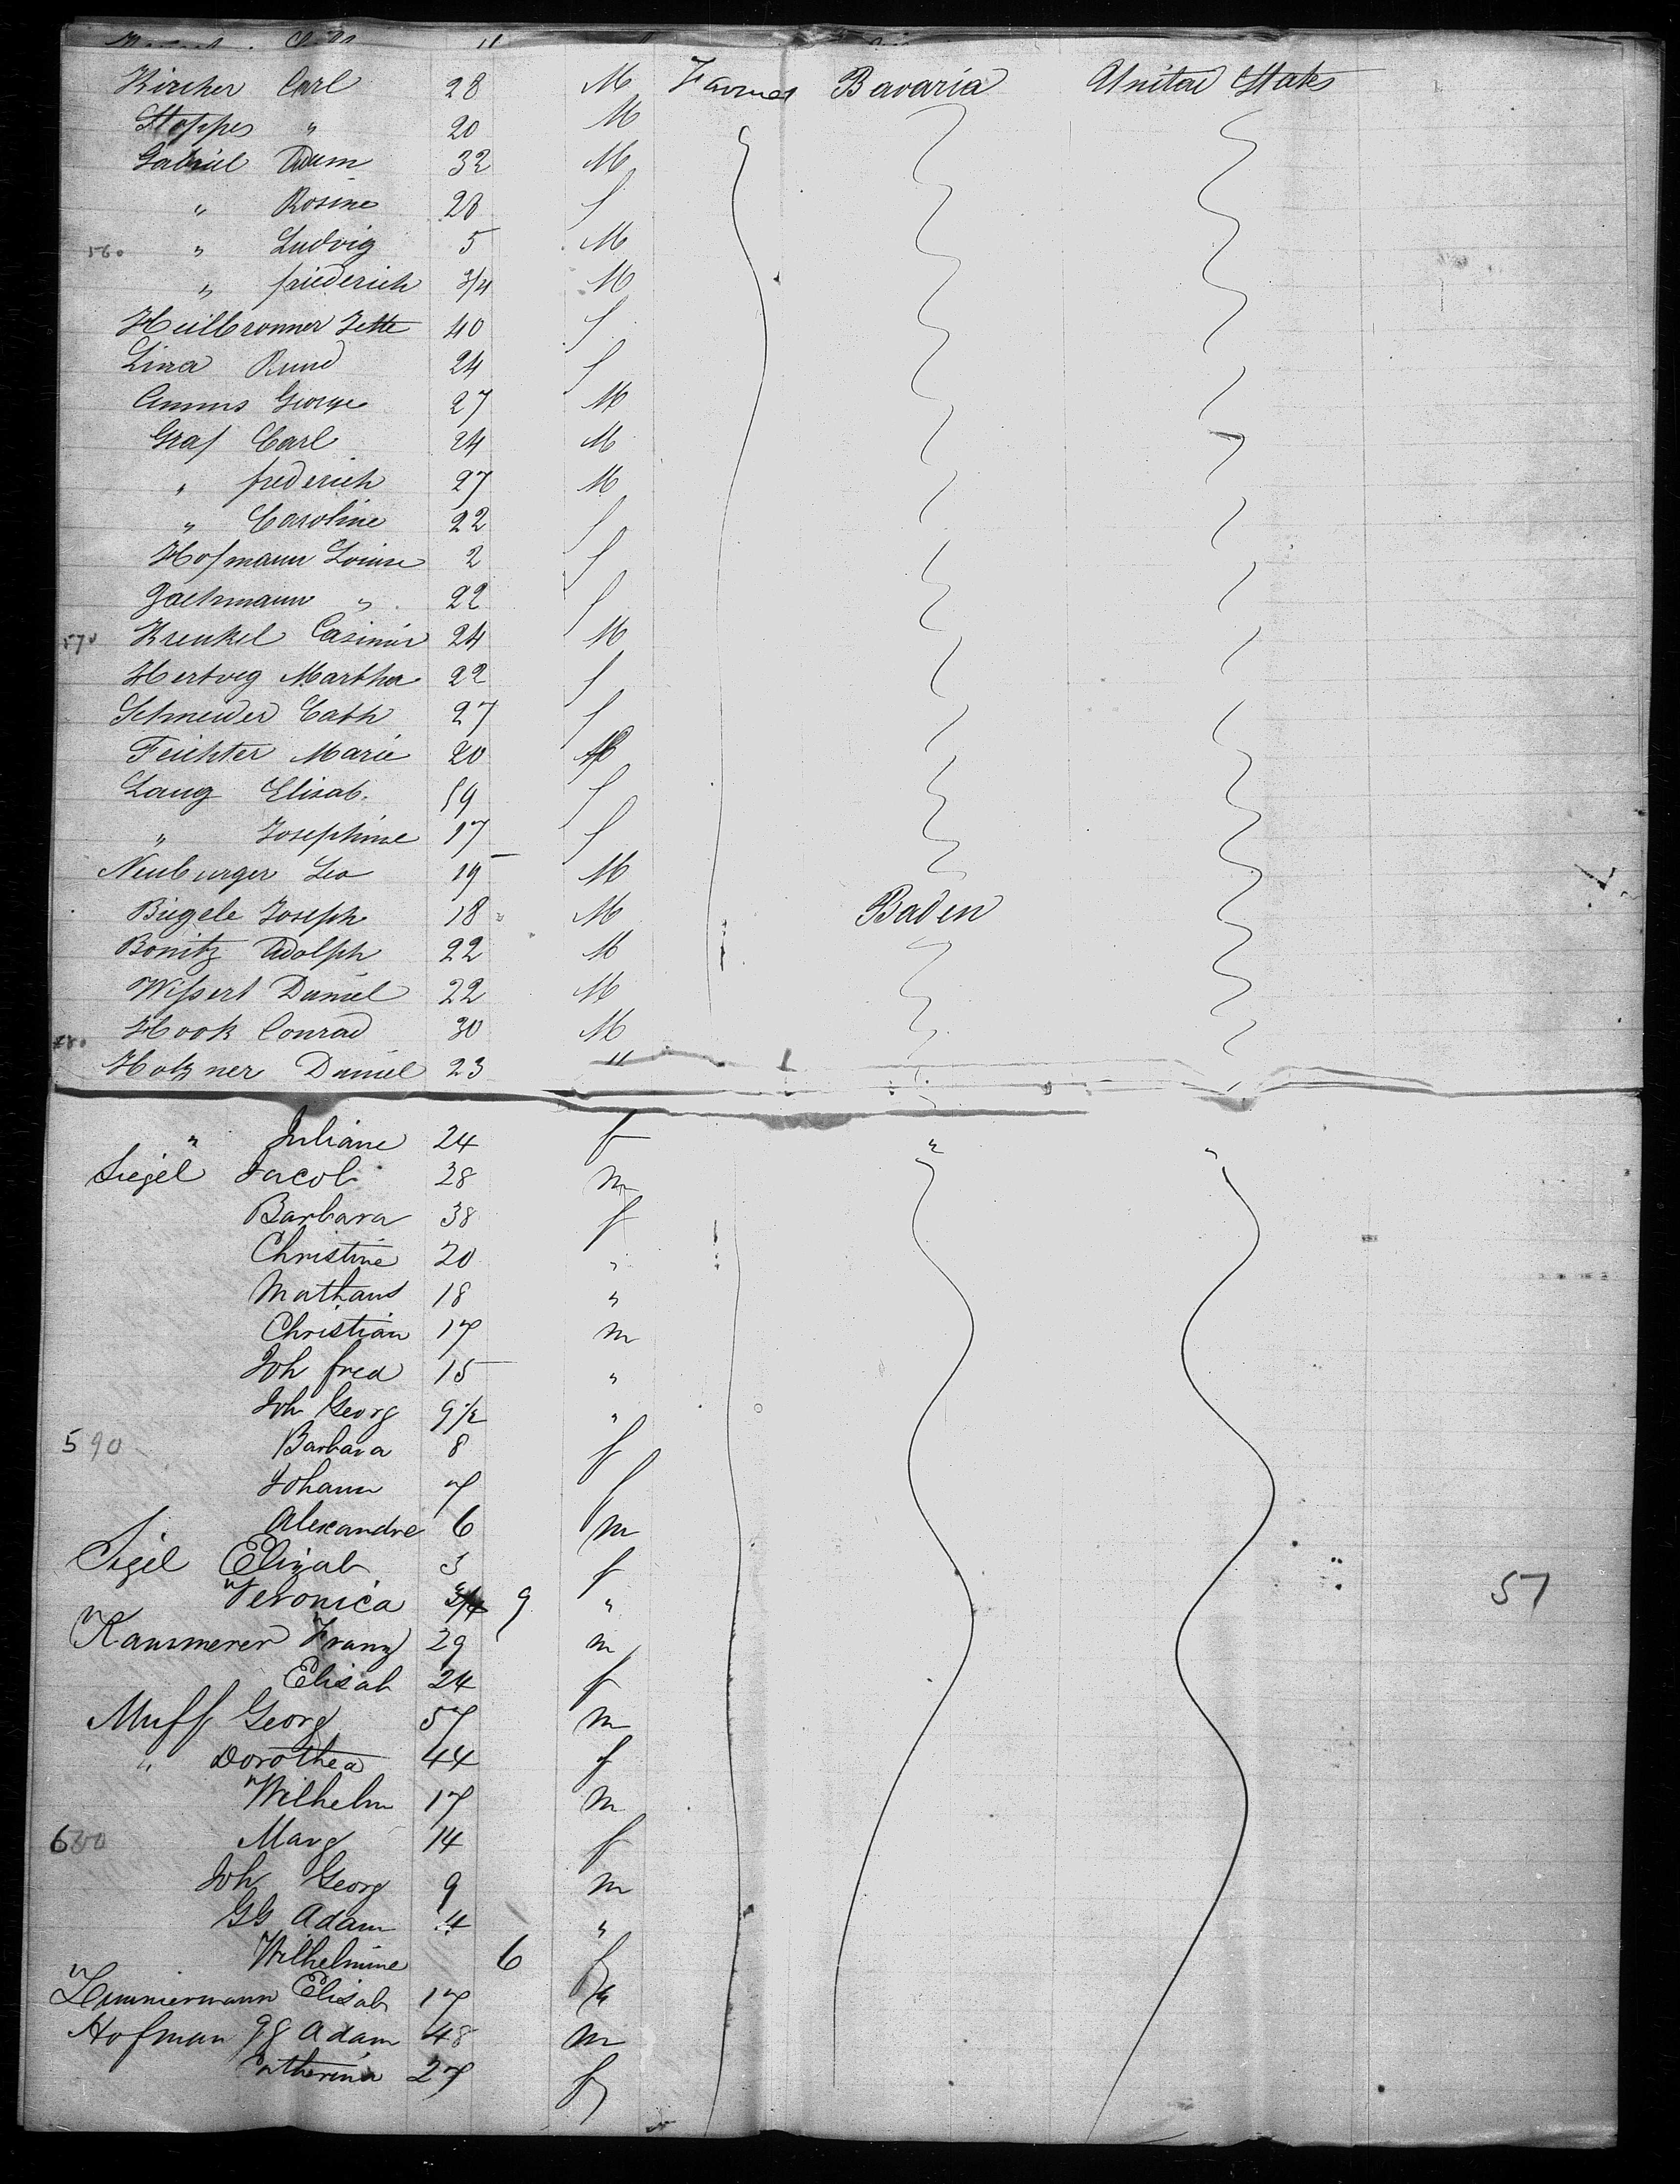 Kircher Carl 28 M Farmer Bavaria United States
Stoppes " 20 M
Gabriel Adam 32 M
" Rosine 28 f
560 " Ludvig 5 M
" friederich 3/4 M
Heilbronner Jette 40 f
Lina Rund 24 f
Ammus George 27 M
Graf Carl 24 M
" frederich 27 M
" Caroline 22 f
Hofmann Louise 2 f
" 22 f
570 Krenkel Casimir 24 M
Hertveg Martha 22 f
Schneider Cath 27 f
Feichter Marie 20
Lang Elisab. 59 f
" Josephine 17 f
Neuburger Leo 19 M
Biegele Joseph 18 M Baden
Bonitz Adolph 22 M
Wissert Daniel 22 M
580 Hook Conrad 30 M
Holzner Daniel 23 "
" Juliane 24 f " "
Siegel Jacob 38 m
Barbara 38 f
Christine 20 "
Mathaus 18 "
Christian 17 m
Joh fred 15 "
Joh Georg 9 1/2 "
590 Barbara 8 f
Johann 7 f
Alexandre 6 m
Sigel Elisab 3 f
" Veronica 3/4 9 " 57
Kammerer Franz 29 m
" Elisab 24 f
Muff Georg 57 m
" Dorothea 44 f
" Wilhelm 17 m
600 Marg 14 f
Joh Georg 9 m
GG Adam 4 "
Wilhelmine 6 f
Zimmermann Elisab 17 "
Hofman gg Adam 48 m
Catherina 27 f